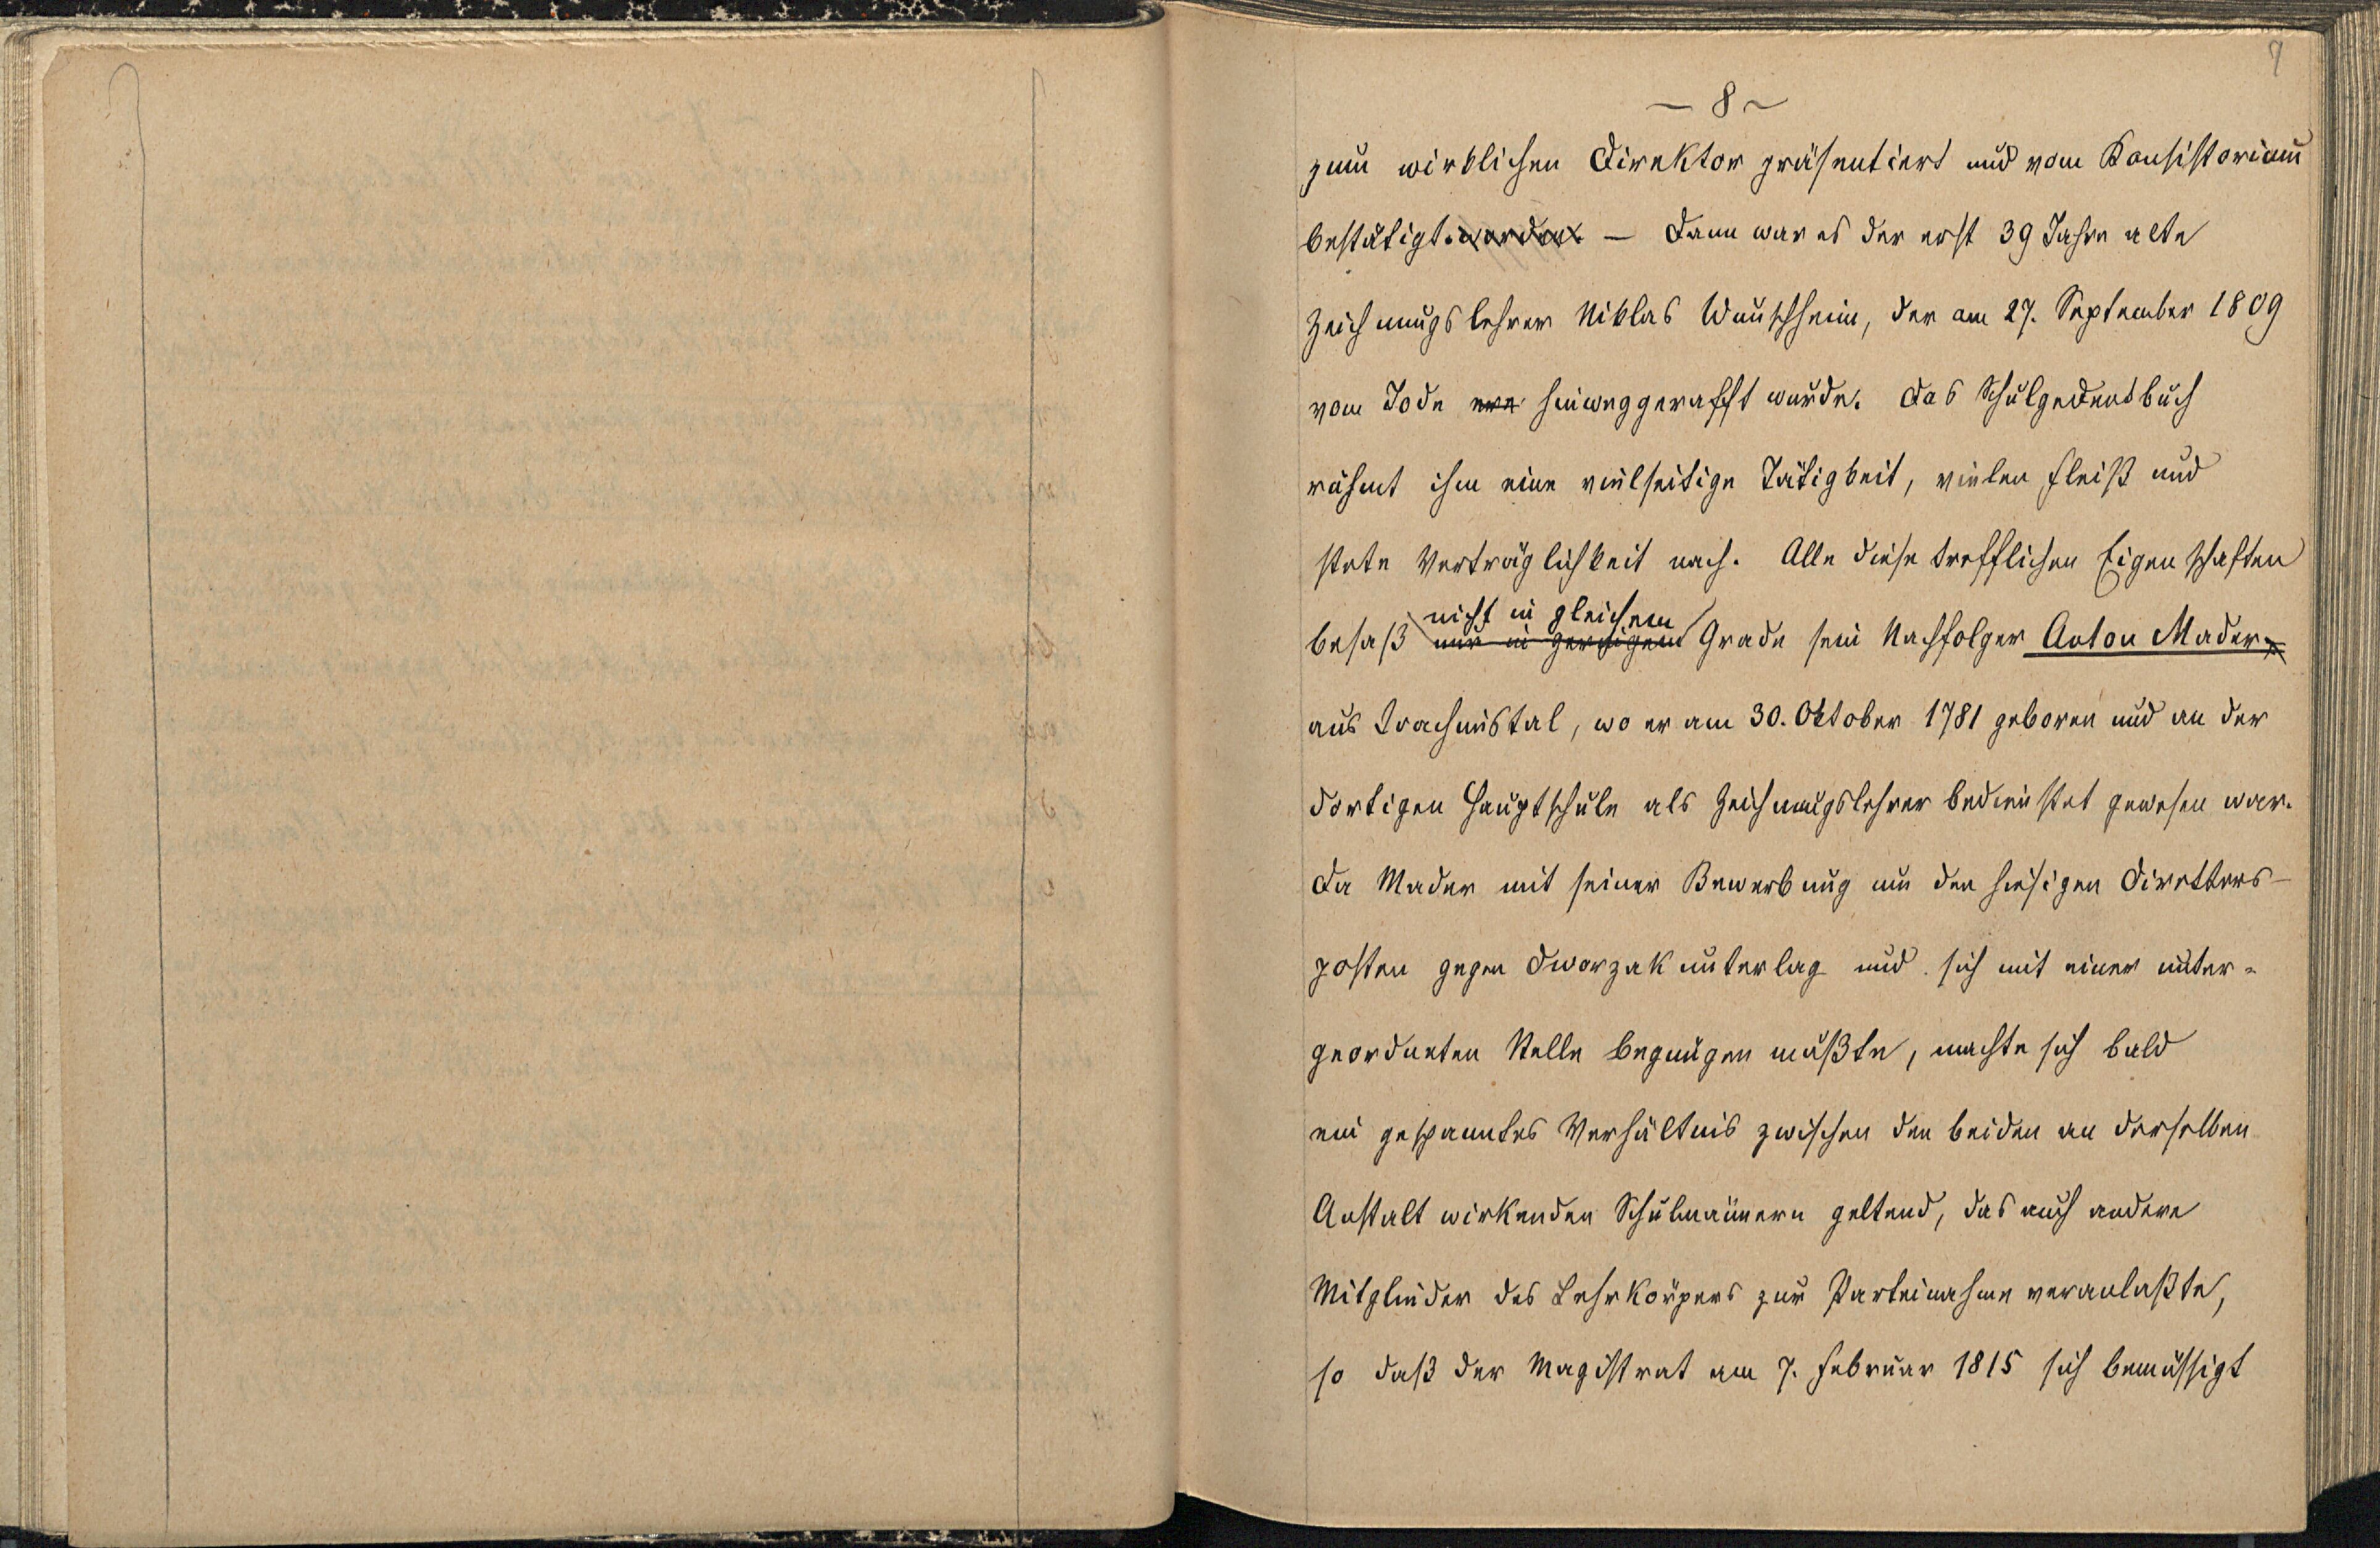 9
— 8 —
zum wirklichen Direktor präsentiert und vom Konsistorium
bestätigt. worden. — Dann war es der erst 39 Jahre alte
Zeichnungslehrer Niklas Wunschheim, der am 27. September 1809
vom Tode hinweggerafft wurde. Das Schulgedenkbuch
rühmt ihm eine vielseitige Tätigkeit, vielen Fleiß und
stete Verträglichkeit nach. Alle diese trefflichen Eigenschaften
nicht in gleichem
besaß nur in geringem Grade sein Nachfolger Anton Mader
aus Joachimstal, wo er am 30. Oktober 1781 geboren und an der
dortigen Hauptschule als Zeichnungslehrer bedienstet gewesen war.
Da Mader mit seiner Bewerbung um den hiesigen Direktors-
posten gegen Dworzak unterlag und sich mit einer unter-
geordneten Stelle begnügen mußte, machte sich bald
ein gespanntes Verhältnis zwischen den beiden an derselben
Anstalt wirkenden Schulmännern geltend, das auch andere
Mitglieder des Lehrkörpers zur Parteinahme veranlaßte,
so daß der Magistrat am 7. Februar 1815 sich bemüssigt